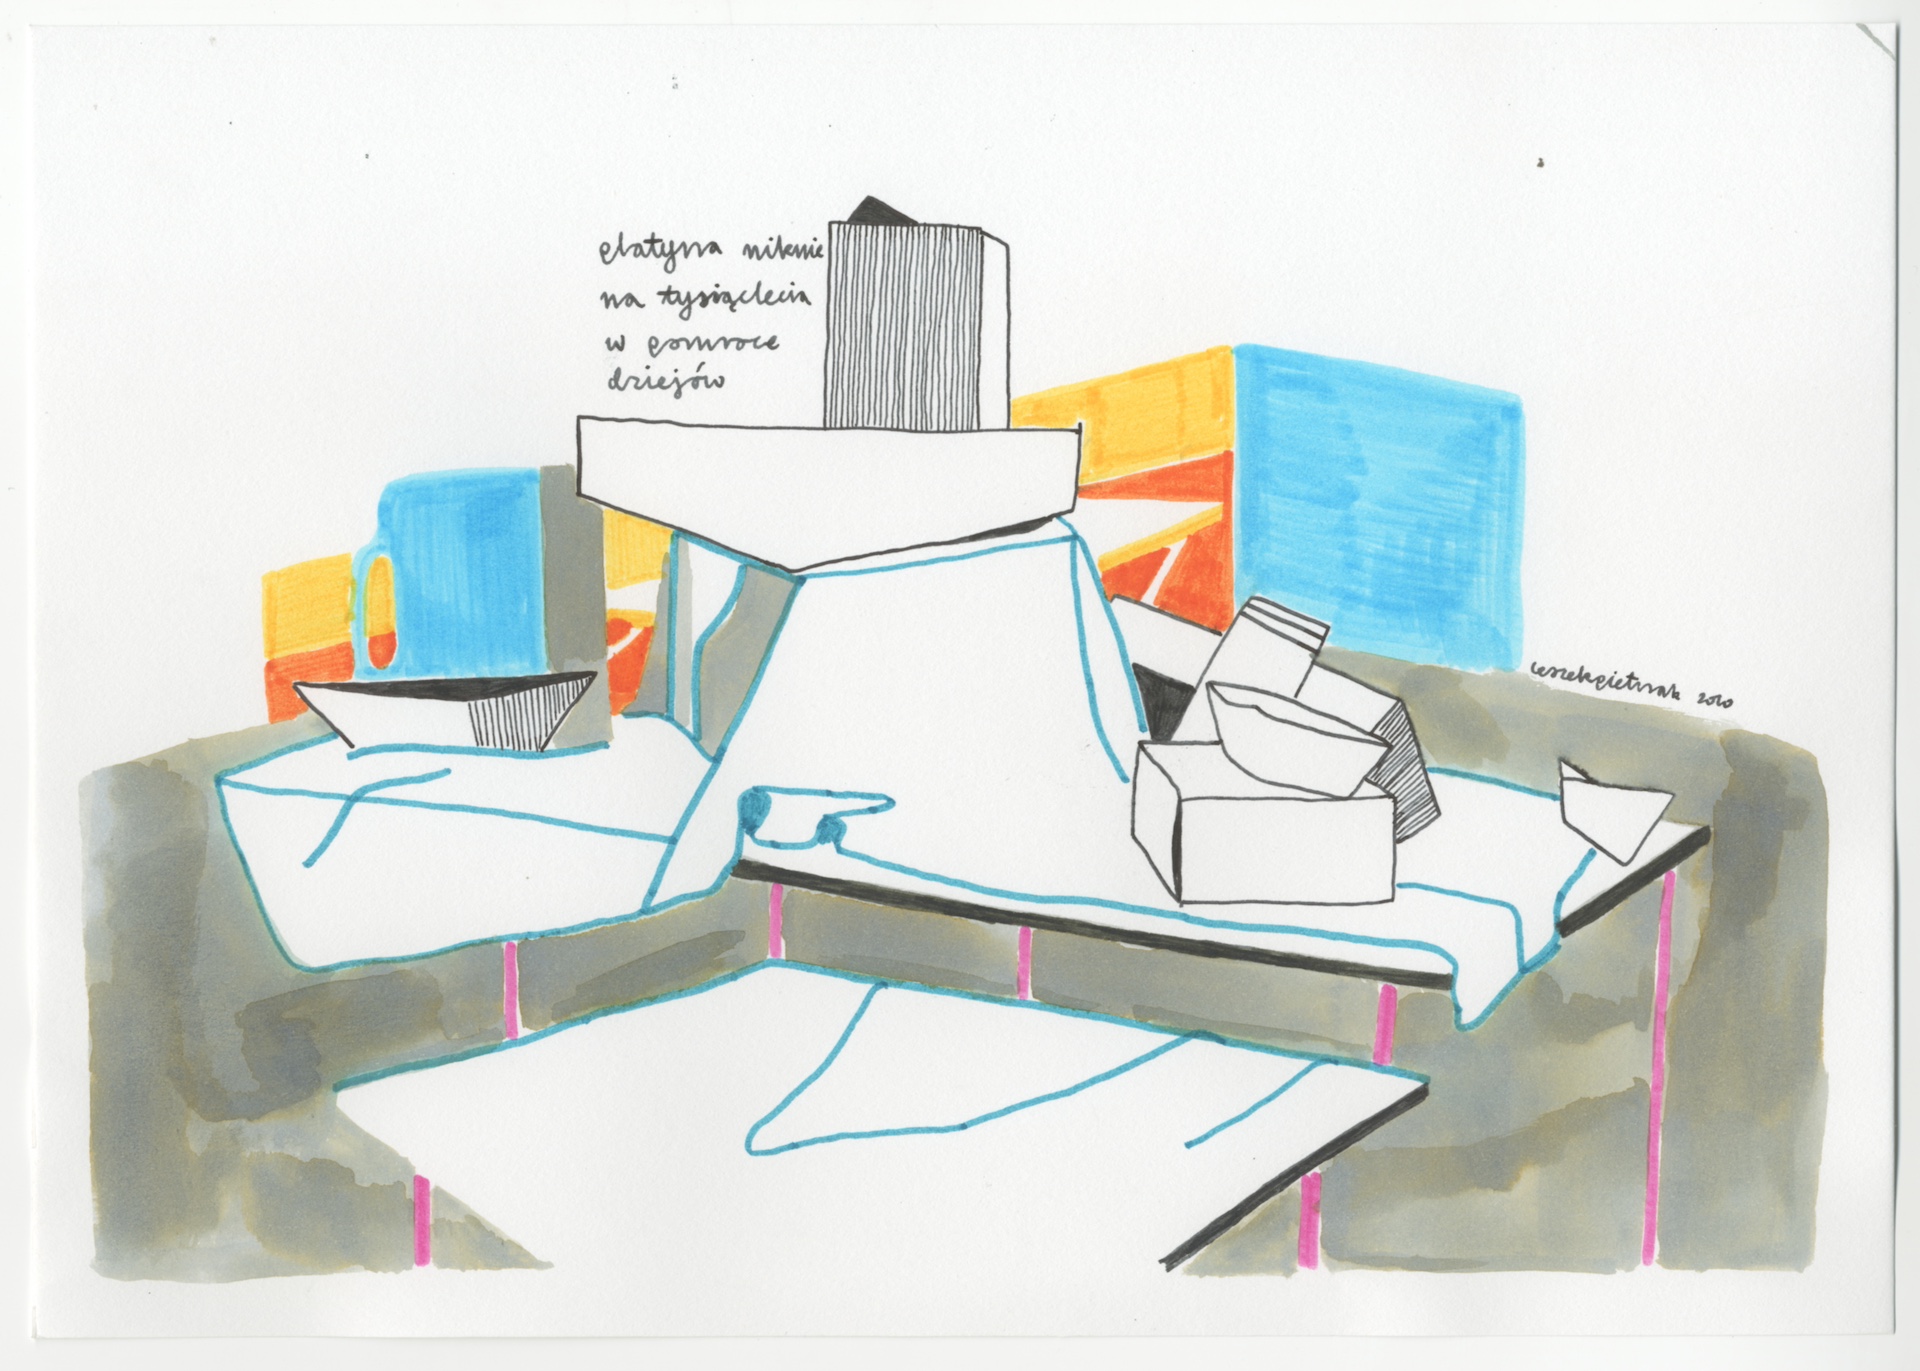 platyna niknie
na tysiąclecia
w pomroce
dziejów
leszekpietrzak 2010